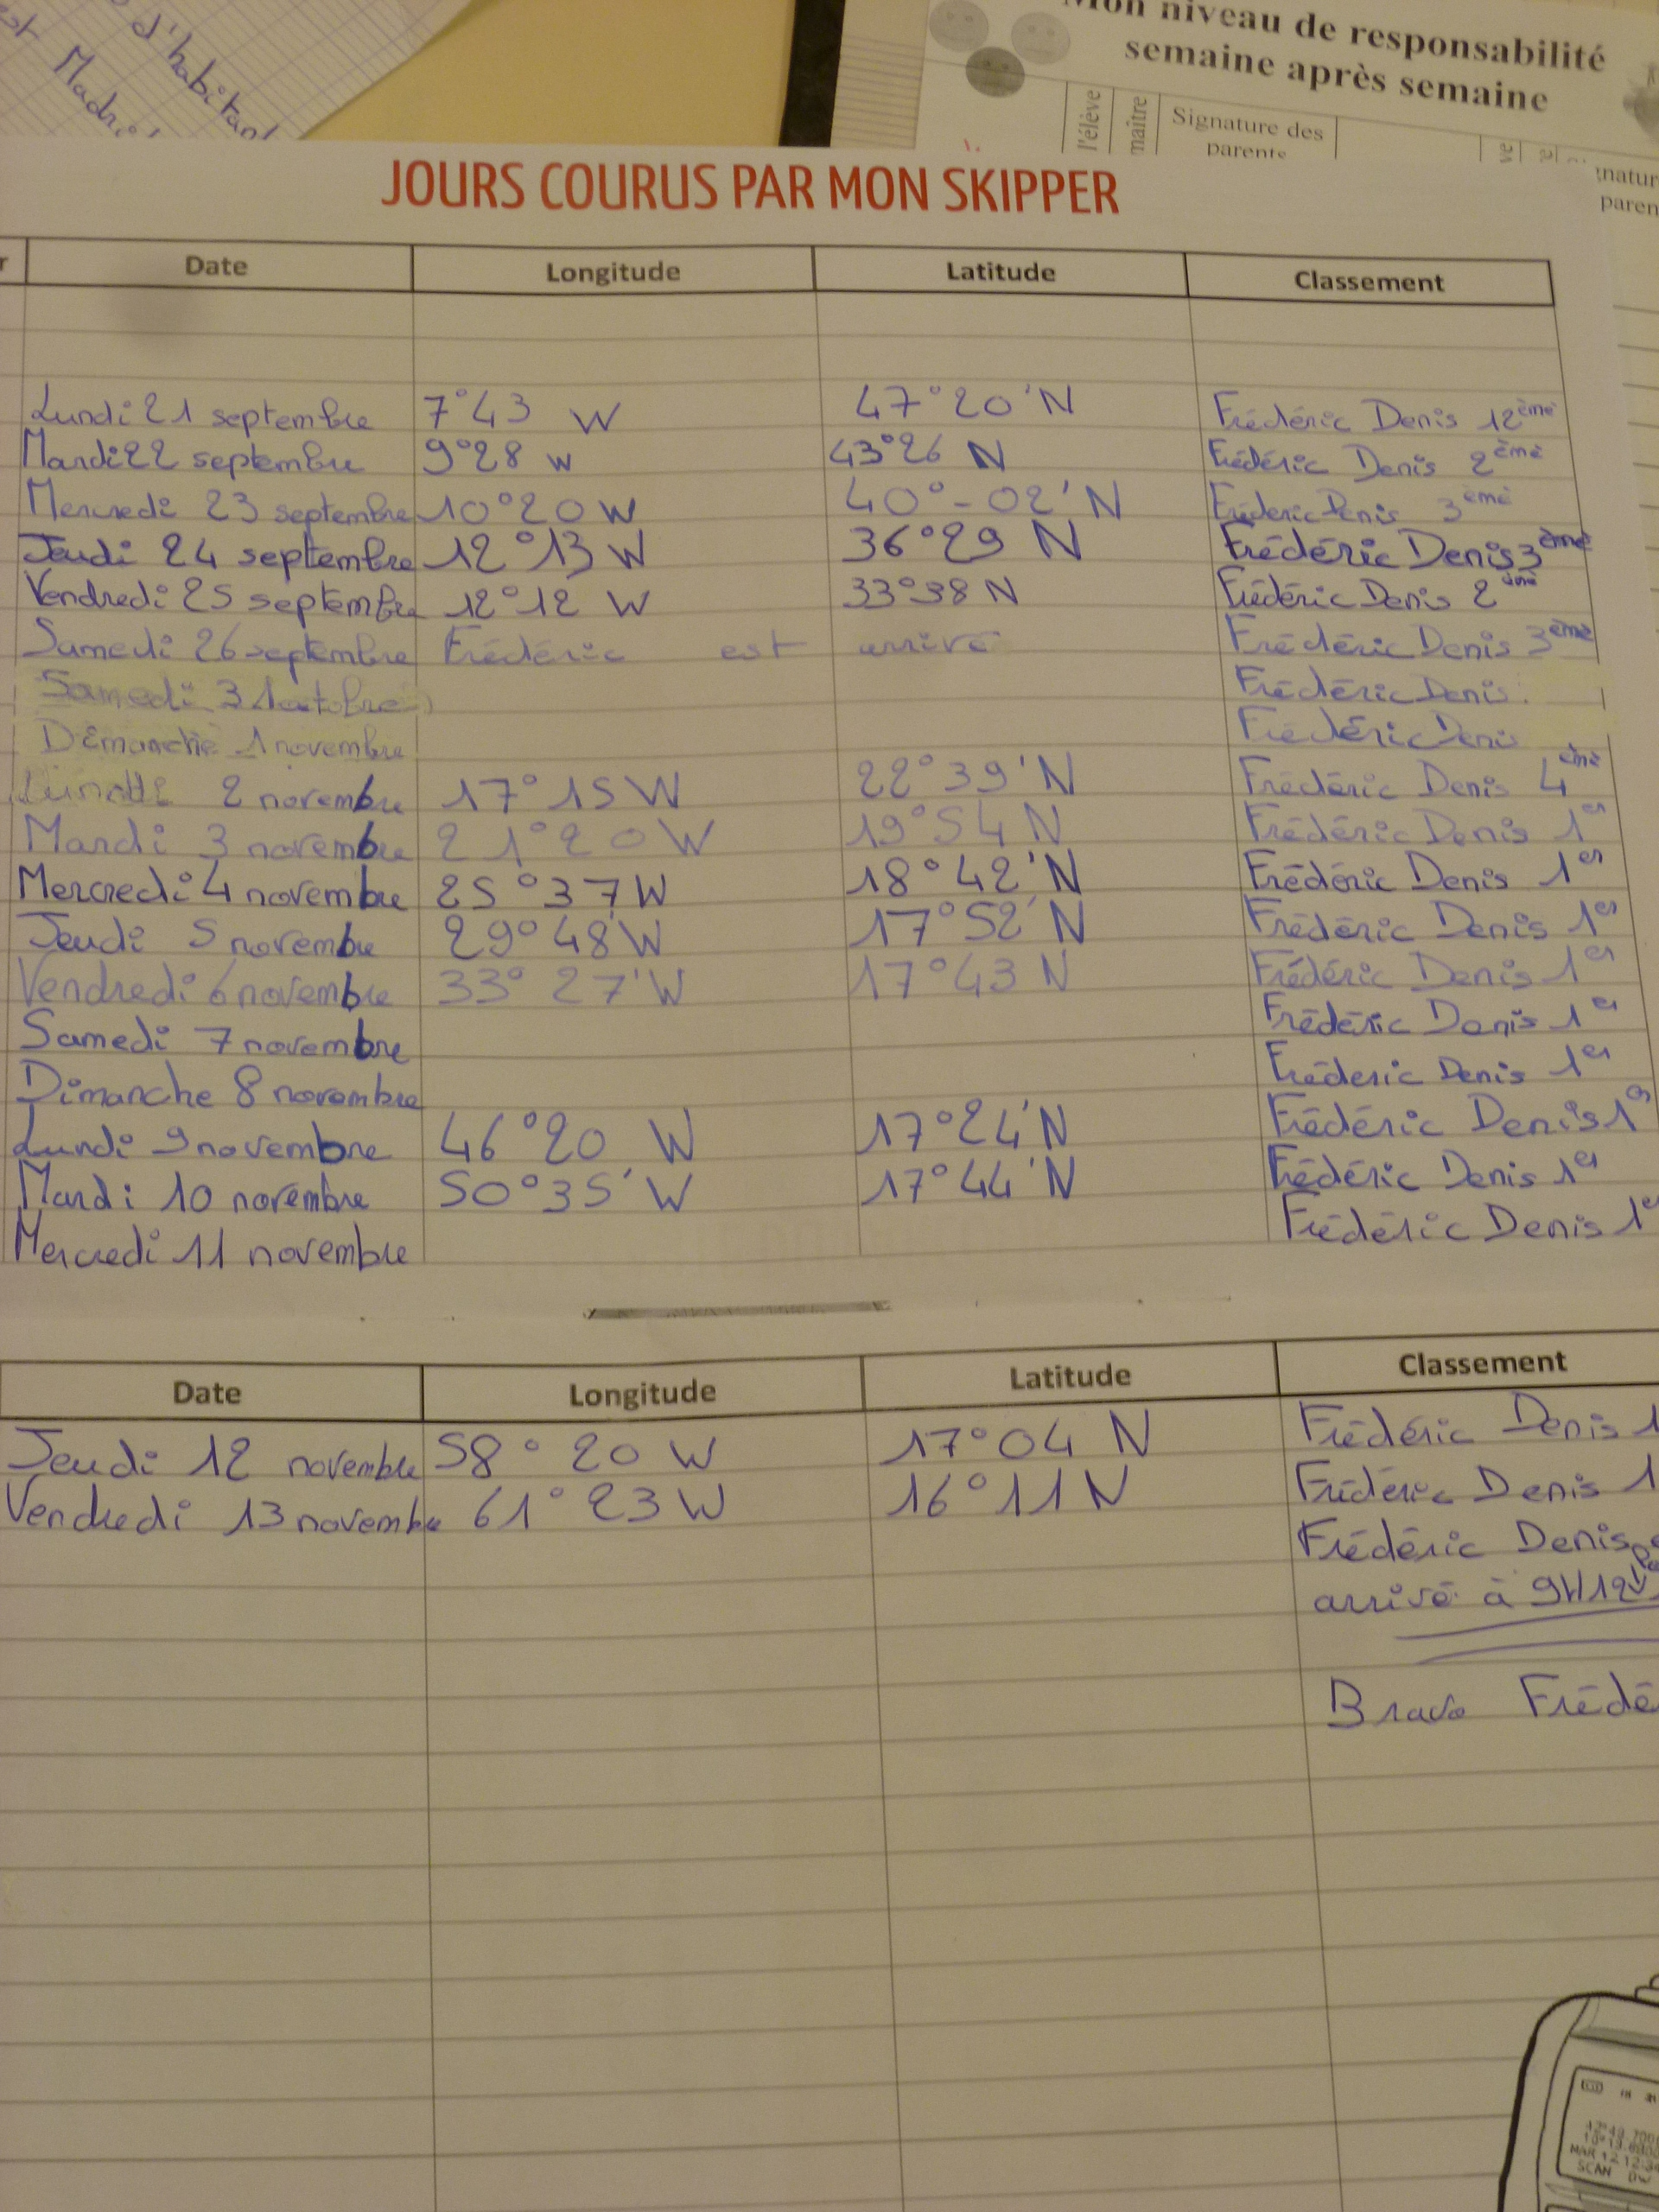 d'habitant
Mon niveau de responsabilité
semaine après semaine
l'élève maître Signature des
parents
JOURS COURUS PAR MON SKIPPER
Date Longitude Latitude Classement
Lundi 21 septembre 7°43 W 47°20'N Frédéric Denis 12ème
Mardi 22 septembre 9°28 W 43°26 N Frédéric Denis 2ème
Mercredi 23 septembre 10°20 W 40°-02'N Fréderic Denis 3ème
Jeudi 24 septembre 12°13 W 36°29 N Frédéric Denis 3ème
Vendredi 25 septembre 12°12 W 33°38 N Frédéric Denis 2ème
Samedi 26 septembre Frédéric est arrivé Frédéric Denis 3ème
Samedi 31 octobre Frédéric Denis.
Dimanche 1 novembre Frédéric Denis
2 novembre 17°15 W 22°39'N Frédéric Denis 4ème
Mardi 3 novembre 21°20 W 19°54 N Frédéric Denis 1er
Mercredi 4 novembre 25°37 W 18°42'N Frédéric Denis 1er
Jeudi 5 novembre 29°48'W 17°52'N Frédéric Denis 1er
Vendredi 6 novembre 33°27'W 17°43 N Frédéric Denis 1er
Samedi 7 novembre Frédéric Denis 1er
Dimanche 8 novembre Fréderic Denis 1er
Lundi 9 novembre 46°20 W 17°24'N Frédéric Denis 1er
Mardi 10 novembre 50°35'W 17°44'N Frédéric Denis 1er
Mercredi 11 novembre Frédéric Denis 1er
Date Longitude Latitude Classement
Jeudi 12 novembre 58°20 W 17°04 N Frédéric Denis 1
Vendredi 13 novembre 61°23 W 16°11 N Frédéric Denis 1
Frédéric Denis
arrivé à 9H12
Bravo Frédé
SCAN